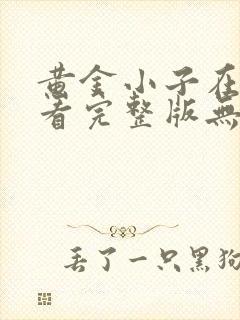 黄金小子在
看完整版無
丢了一只黑狗